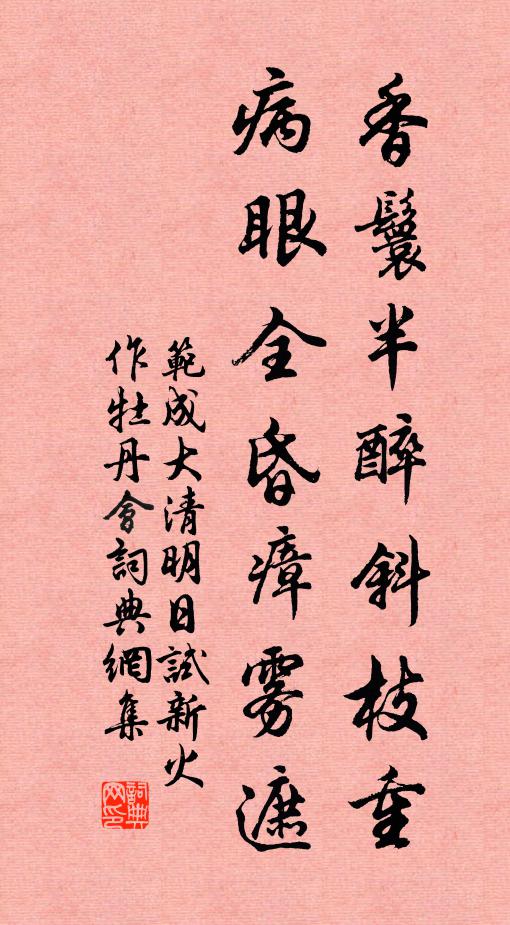 香鬟半醉斜枝重
病眼全昏瘴雾遮
範成大清明日試新火
作牡丹會詞典網集
詞典网印